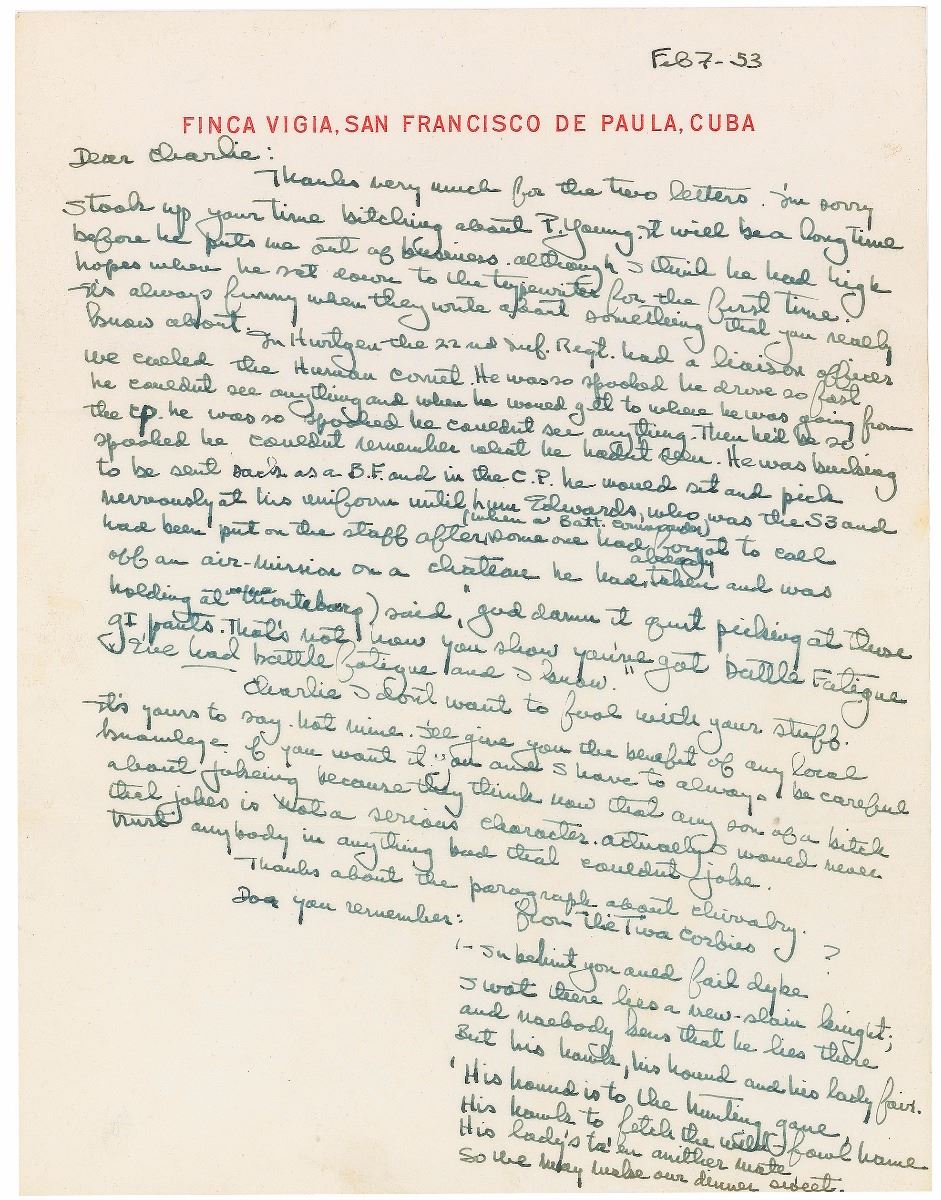 Feb 7 - 53
FINCA VIGIA, SAN FRANCISCO DE PAULA, CUBA
Dear Charlie:
Thanks very much for the two letters. I'm sorry
I took up your time bitching about P. Young. It will be a long time
before he puts me out of business. although I think he had high
hopes when he set down to the typewriter for the first time.
It's always funny when they write about something that you really
know about.
In Hurtgen the 22nd Inf. Regt. had a liaison officer
we called the Human Comet. He was so spooked he drove so fast
he couldnt see anything and when he would get to where he was going from
the CP. he was so spooked he couldnt see anything. Then he'd be so
spooked he couldnt remember what he hadnt seen. He was bucking
to be sent back as a B.F. and in the C.P. he would sit and pick
nervously at his uniform until Edwards, who was the S3 and
(when a Batt. commander)
had been put on the staff after some one had forgot to call
already
off an air-mission on a chateau he had taken and was
holding at ) said, "god damn it quit picking at those
GI pants. That's not how you show you've got battle Fatigue
I've had battle fatigue and I know."
Charlie I dont want to fool with your stuff.
It's yours to say. not mine. I'll give you the benefit of any local
knowlege if you want it. and I have to always be careful
about jokeing because they think now that any son of a bitch
that jokes is not a serious character. actually I would never
trust anybody in anything bad that couldnt joke.
Thanks about the paragraph about chivalry.
Doa you remember: from The Twa Corbies ?
'- In behint yon auld fail dyke
I wot there lies a new-slain knight;
and naebody kens that he lies there
But his hawk, his hound and his lady fair.
'His hound is to the hunting gane,
His hawk to fetch the wild-fowl hame
His lady's ta'en another mate
So we may make our dinner sweet.